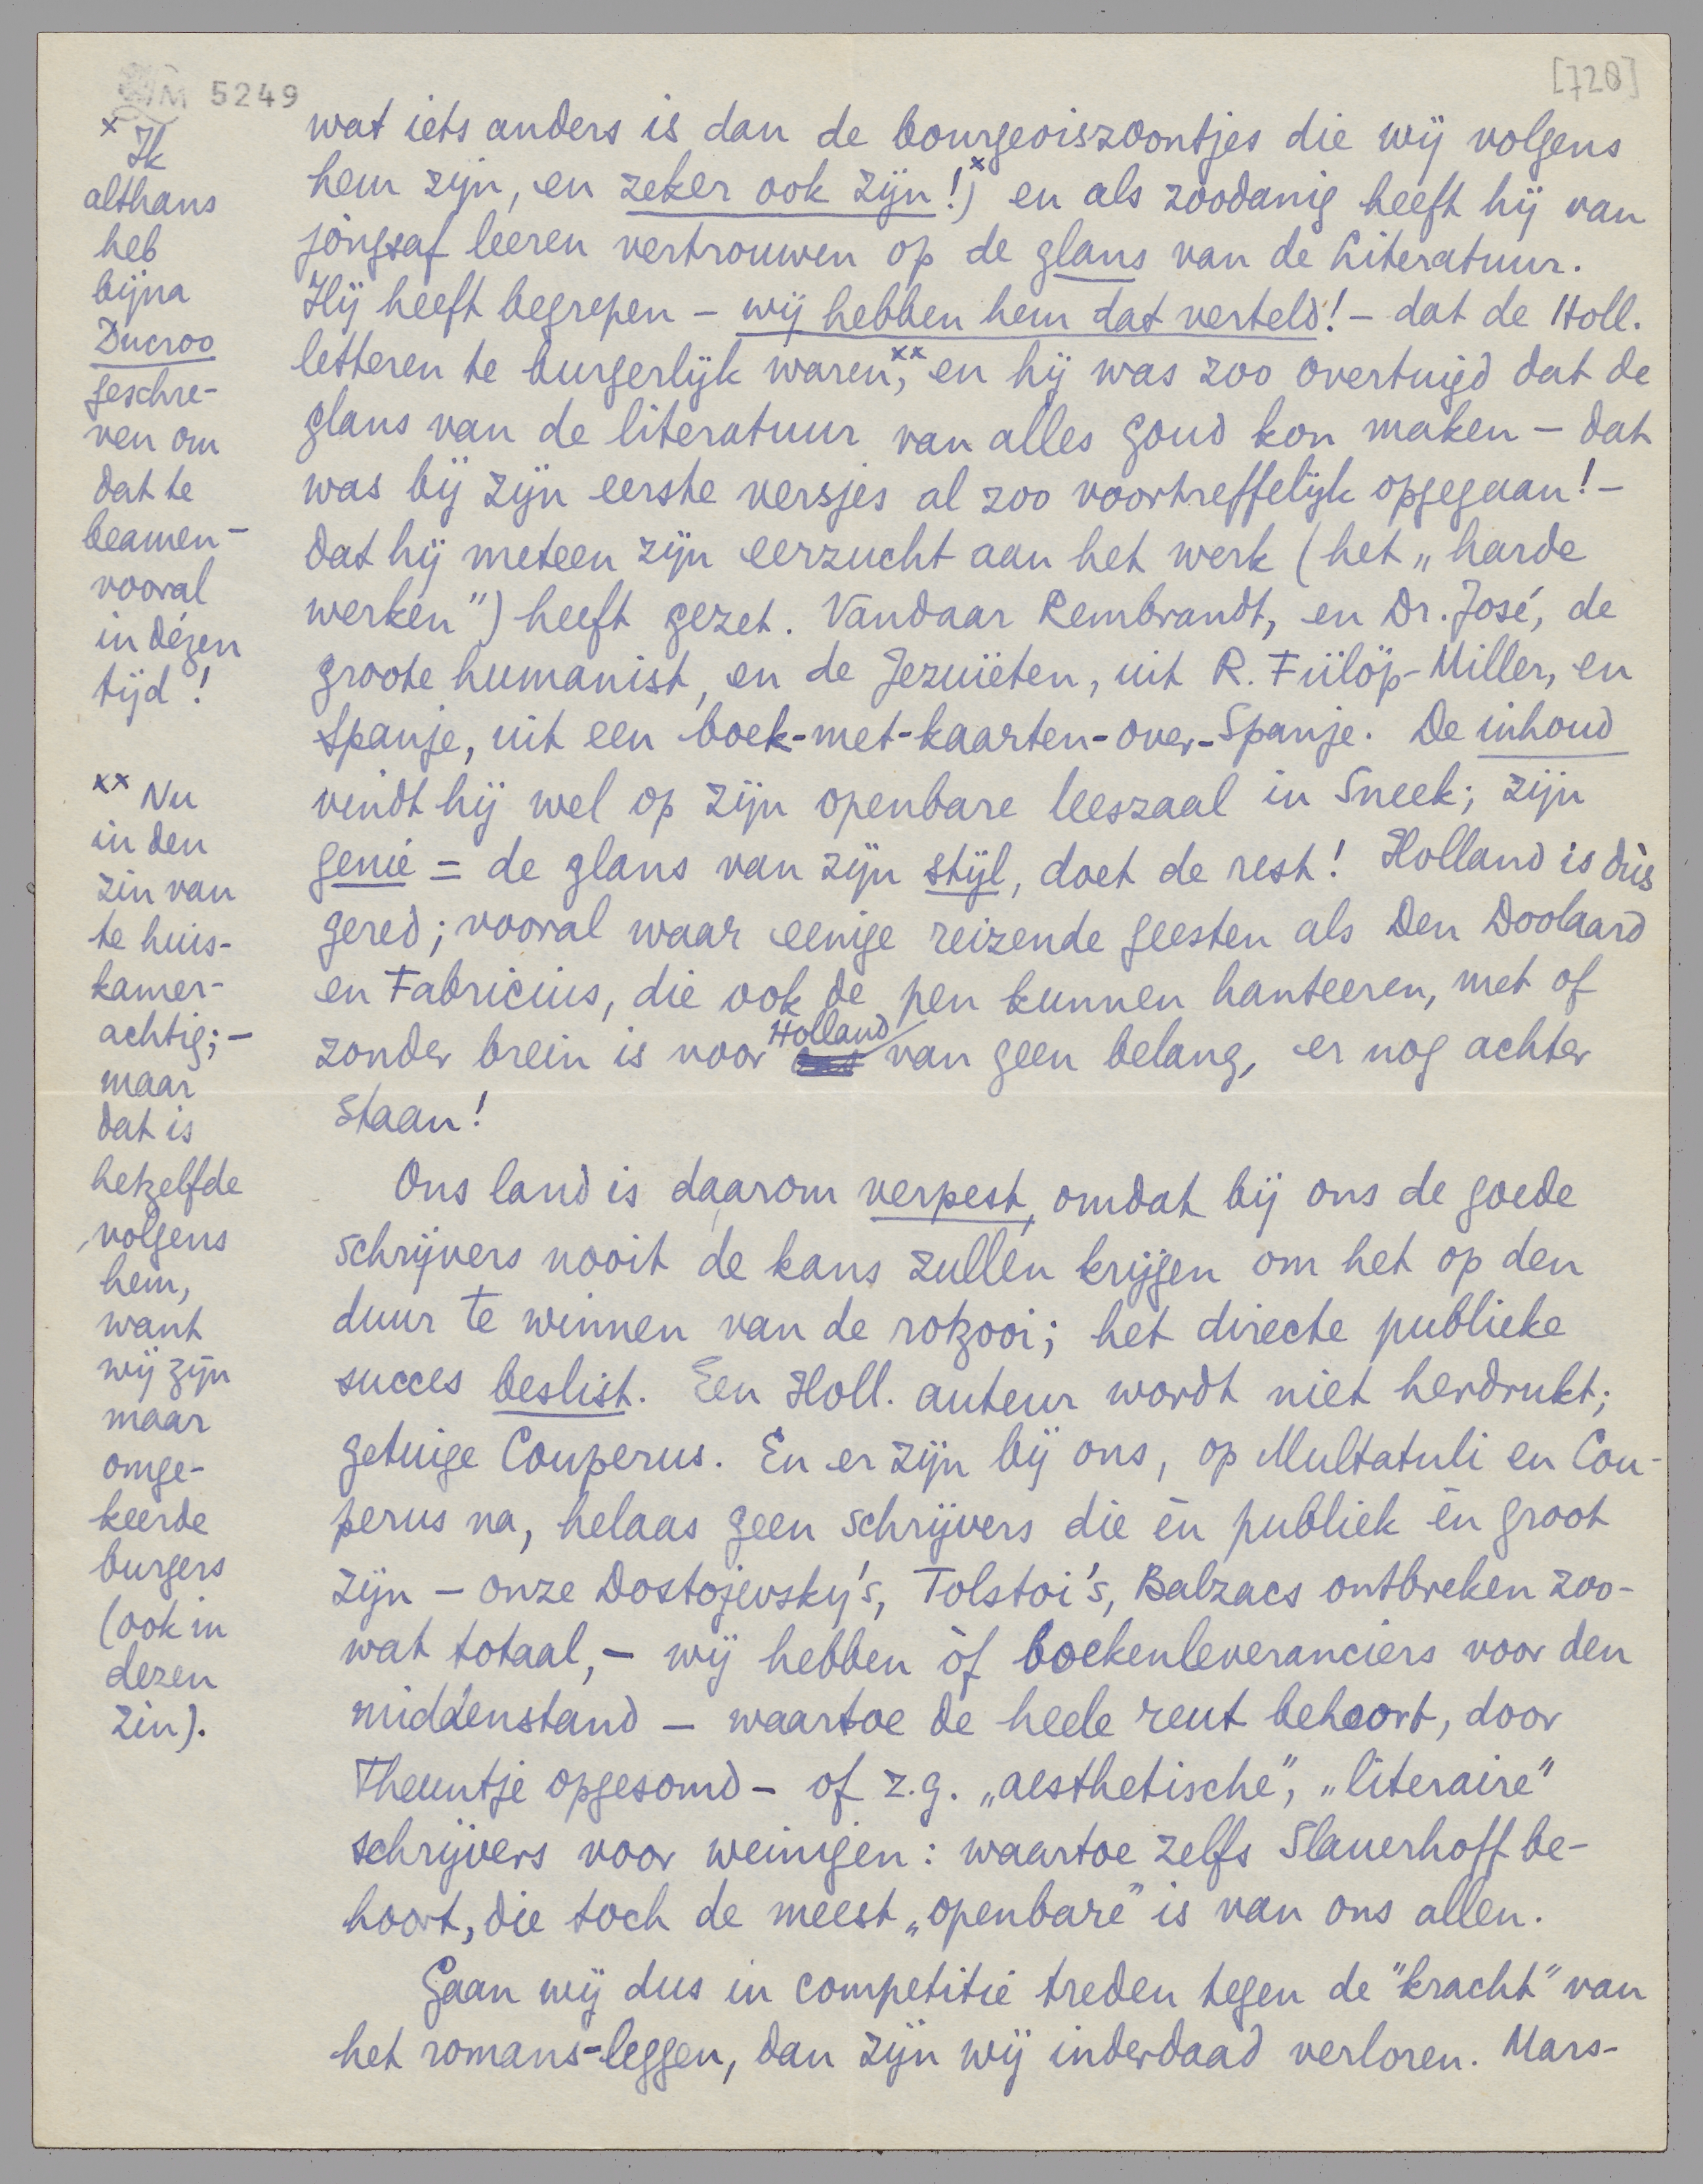 M 5249
[728]
wat iets anders is dan de bourgeoiszoontjes die wij volgens
hem zijn, en zeker ook zijn!)ˣ en als zoodanig heeft hij van
jongsaf leeren vertrouwen op de glans van de Literatuur.
Hij heeft begrepen – wij hebben hem dat verteld! – dat de Holl.
letteren te burgerlijk waren,ˣˣ en hij was zoo overtuigd dat de
glans van de literatuur van alles goud kon maken – dat
was bij zijn eerste versjes al zoo voortreffelijk opgegaan! –
dat hij meteen zijn eerzucht aan het werk (het „harde
werken") heeft gezet. Vandaar Rembrandt, en Dr. José, de
groote humanist, en de Jezuïeten, uit R. Fülöp-Miller, en
Spanje, uit een boek-met-kaarten-over-Spanje. De inhoud
vindt hij wel op zijn openbare leeszaal in Sneek; zijn
genie = de glans van zijn stijl, doet de rest! Holland is dùs
gered; vooral waar eenige reizende geesten als Den Doolaard
en Fabricius, die ook de pen kunnen hanteeren, met of
zonder brein is voor Holland van geen belang, er nog achter
staan!
Ons land is daarom verpest, omdat bij ons de goede
schrijvers nooit de kans zullen krijgen om het op den
duur te winnen van de rotzooi; het directe publieke
succes beslist. Een Holl. auteur wordt niet herdrukt;
getuige Couperus. En er zijn bij ons, op Multatuli en Cou-
perus na, helaas geen schrijvers die èn publiek èn groot
zijn – onze Dostojevsky's, Tolstoi's, Balzacs ontbreken zoo-
wat totaal, – wij hebben òf boekenleveranciers voor den
middenstand – waartoe de heele reut behoort, door
Theuntje opgesomd – of z.g. „aesthetische", „literaire"
schrijvers voor weinigen: waartoe zelfs Slauerhoff be-
hoort, die toch de meest „openbare" is van ons allen.
Gaan wij dus in competitie treden tegen de "kracht" van
het romans-leggen, dan zijn wij inderdaad verloren. Mars-
x Ik
althans
heb
bijna
Ducroo
geschre-
ven om
dat te
beamen –
vooral
in dézen
tijd!
xx Nu
in den
zin van
te huis-
kamer-
achtig; –
maar
dat is
hetzelfde
volgens
hem,
want
wij zijn
maar
omge-
keerde
burgers
(ook in
dezen
zin).